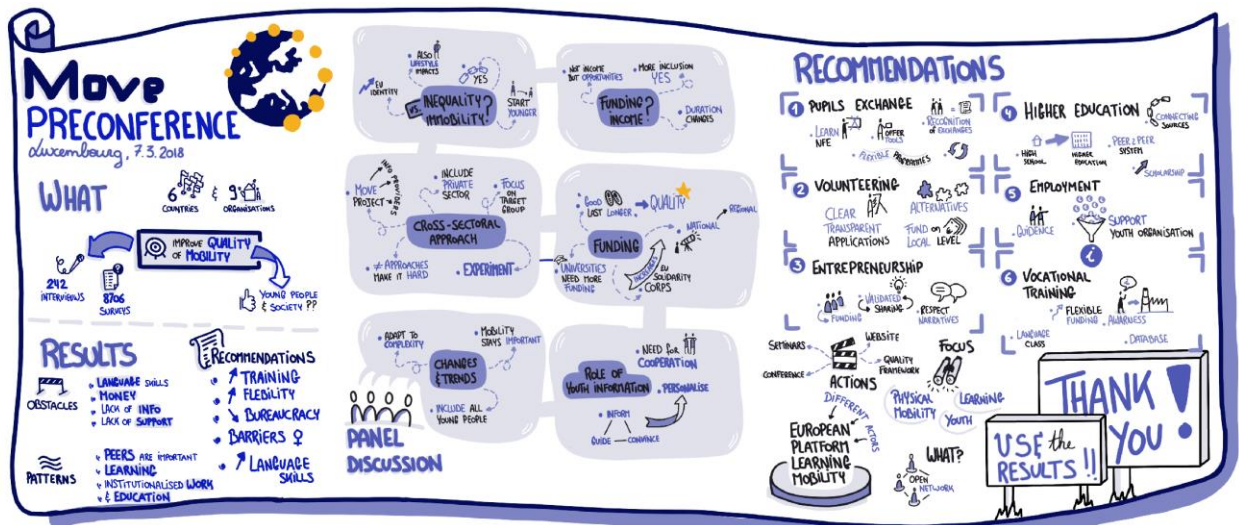 Move
PRECONFERENCE
Luxembourg, 7.3.2018
WHAT
6 & 9
COUNTRIES ORGANISATIONS
IMPROVE QUALITY
OF MOBILITY
242
INTERVIEWS
8706
SURVEYS
YOUNG PEOPLE
& SOCIETY ??
RESULTS
OBSTACLES
LANGUAGE SKILLS
MONEY
LACK OF INFO
LACK OF SUPPORT
PATTERNS
PEERS ARE IMPORTANT
LEARNING
INSTITUTIONALISED WORK
& EDUCATION
RECOMMENDATIONS
TRAINING
FLEBILITY
BUREAUCRACY
BARRIERS ♀
LANGUAGE
SKILLS
ALSO
LIFESTYLE
IMPACTS
YES
EU
IDENTITY
VS.
INEQUALITY
IMMOBILITY?
START
YOUNGER
NOT INCOME
BUT OPPORTUNITIES
MORE INCLUSION
YES
FUNDING
INCOME?
DURATION
CHANGES
MOVE
PROJECT
INFO PROVIDERS
INCLUDE
PRIVATE
SECTOR
FOCUS
ON
TARGET
GROUP
CROSS-SECTORAL
APPROACH
≠ APPROACHES
MAKE IT HARD
EXPERIMENT
GOOD
LAST LONGER
QUALITY
REGIONAL
NATIONAL
FUNDING
UNIVERSITIES
NEED MORE
FUNDING
INCREASES
EU
SOLIDARITY
CORPS
ADAPT TO
COMPLEXITY
MOBILITY
STAYS IMPORTANT
CHANGES
& TRENDS
INCLUDE ALL
YOUNG PEOPLE
NEED FOR
COOPERATION
ROLE OF
YOUTH INFORMATION
PERSONALISE
INFORM
GUIDE CONVINCE
PANEL
DISCUSSION
RECOMMENDATIONS
1 PUPILS EXCHANGE
LEARN
NFE
OFFER
TOOLS
RECOGNITION
OF EXCHANGES
FLEXIBLE PROGRAMMES
2 VOLUNTEERING
CLEAR
TRANSPARENT
APPLICATIONS
ALTERNATIVES
FUND ON
LOCAL LEVEL
3 ENTREPRENEURSHIP
FUNDING
VALIDATED
SHARING
RESPECT
NARRATIVES
4 HIGHER EDUCATION
CONNECTING
SOURCES
HIGH
SCHOOL
HIGHER
EDUCATION
PEER 2 PEER
SYSTEM
SCHOLARSHIP
5 EMPLOYMENT
GUIDENCE
SUPPORT
YOUTH ORGANISATION
6 VOCATIONAL
TRAINING
FLEXIBLE
FUNDING
AWARNESS
LANGUAGE
CLASS
DATABASE
SEMINARS
WEBSITE
CONFERENCE
QUALITY
FRAMEWORK
ACTIONS
DIFFERENT
ACTORS
EUROPEAN
PLATFORM
LEARNING
MOBILITY
FOCUS
PHYSICAL
MOBILITY
LEARNING
YOUTH
WHAT?
OPEN
NETWORK
USE the
RESULTS!!
THANK
YOU!